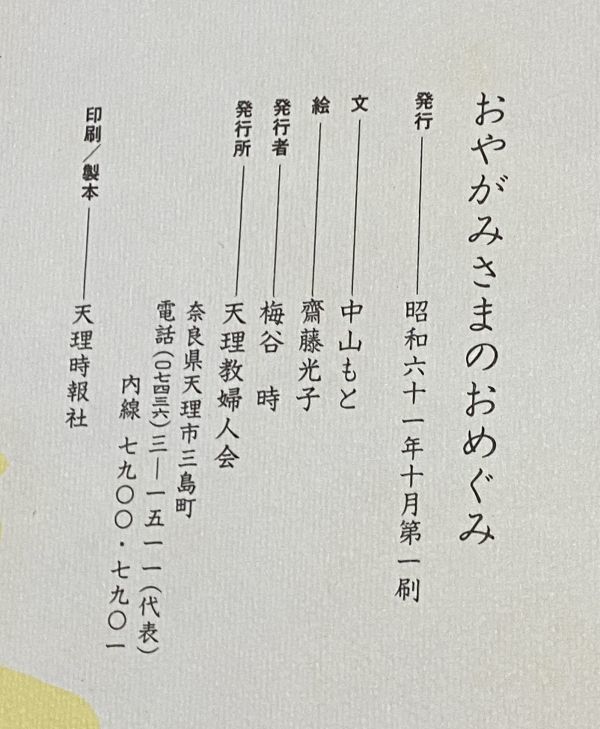 おやがみさまのおめぐみ
発行 昭和六十一年十月第一刷
文 中山もと
絵 齋藤光子
発行者 梅谷 時
発行所 天理教婦人会
奈良県天理市三島町
電話(〇七四三六)三―一五一一(代表)
内線 七九〇〇・七九〇一
印刷／製本 天理時報社